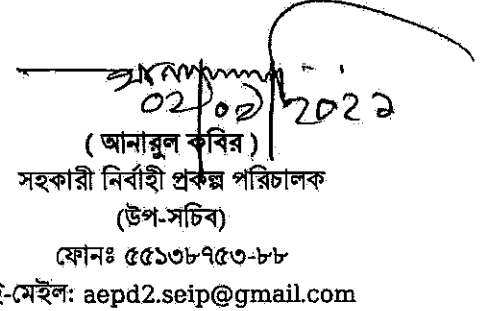 ( আনারুল কবির )
সহকারী নির্বাহী প্রকল্প পরিচালক
(উপ-সচিব)
ফোনঃ ৫৫১৩৮৭৫৩-৮৮
ই-মেইল: aepd2.seip@gmail.com